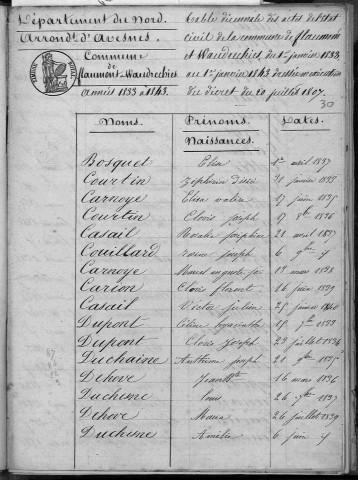 Département du Nord.
Arrond.t d'Avesnes.
Commune
de
flaumont-Waudrechies
années 1833 à 1843.
Table décennale des actes de l'état
civil de la commune de flaumont
et Waudrechies, du 1er janvier 1833,
au 1er janvier 1843 dressée en exécution
du décret du 20 juillet 1807.
30
Noms. Prénoms. Dates.
Naissances.
Bosquet Elisa 1er avril 1837
Courtin Zéphirin désiré janvier 1835
Carnoye Elisa valérie 17 juin 1835
Courtin Clovis joseph 17 1836
Casail Rosalie joséphine 21 avril 1837
Couillard joseph 6 9bre
Carnoye Marcel auguste 13 mars 1838
Carion Clovis florent 16 juin 1839
Casail Victor julien 25 janvier 1840
Dupont Céline 18 1833
Dupont Clovis joseph 23 juillet 1834
Duchaine Anthime joseph 21 1835
Dehove 16 mars 1836
Duchesne louis 26 1837
Dehove Maria 26 juillet 1839
Duchesne Amélie 6 juin